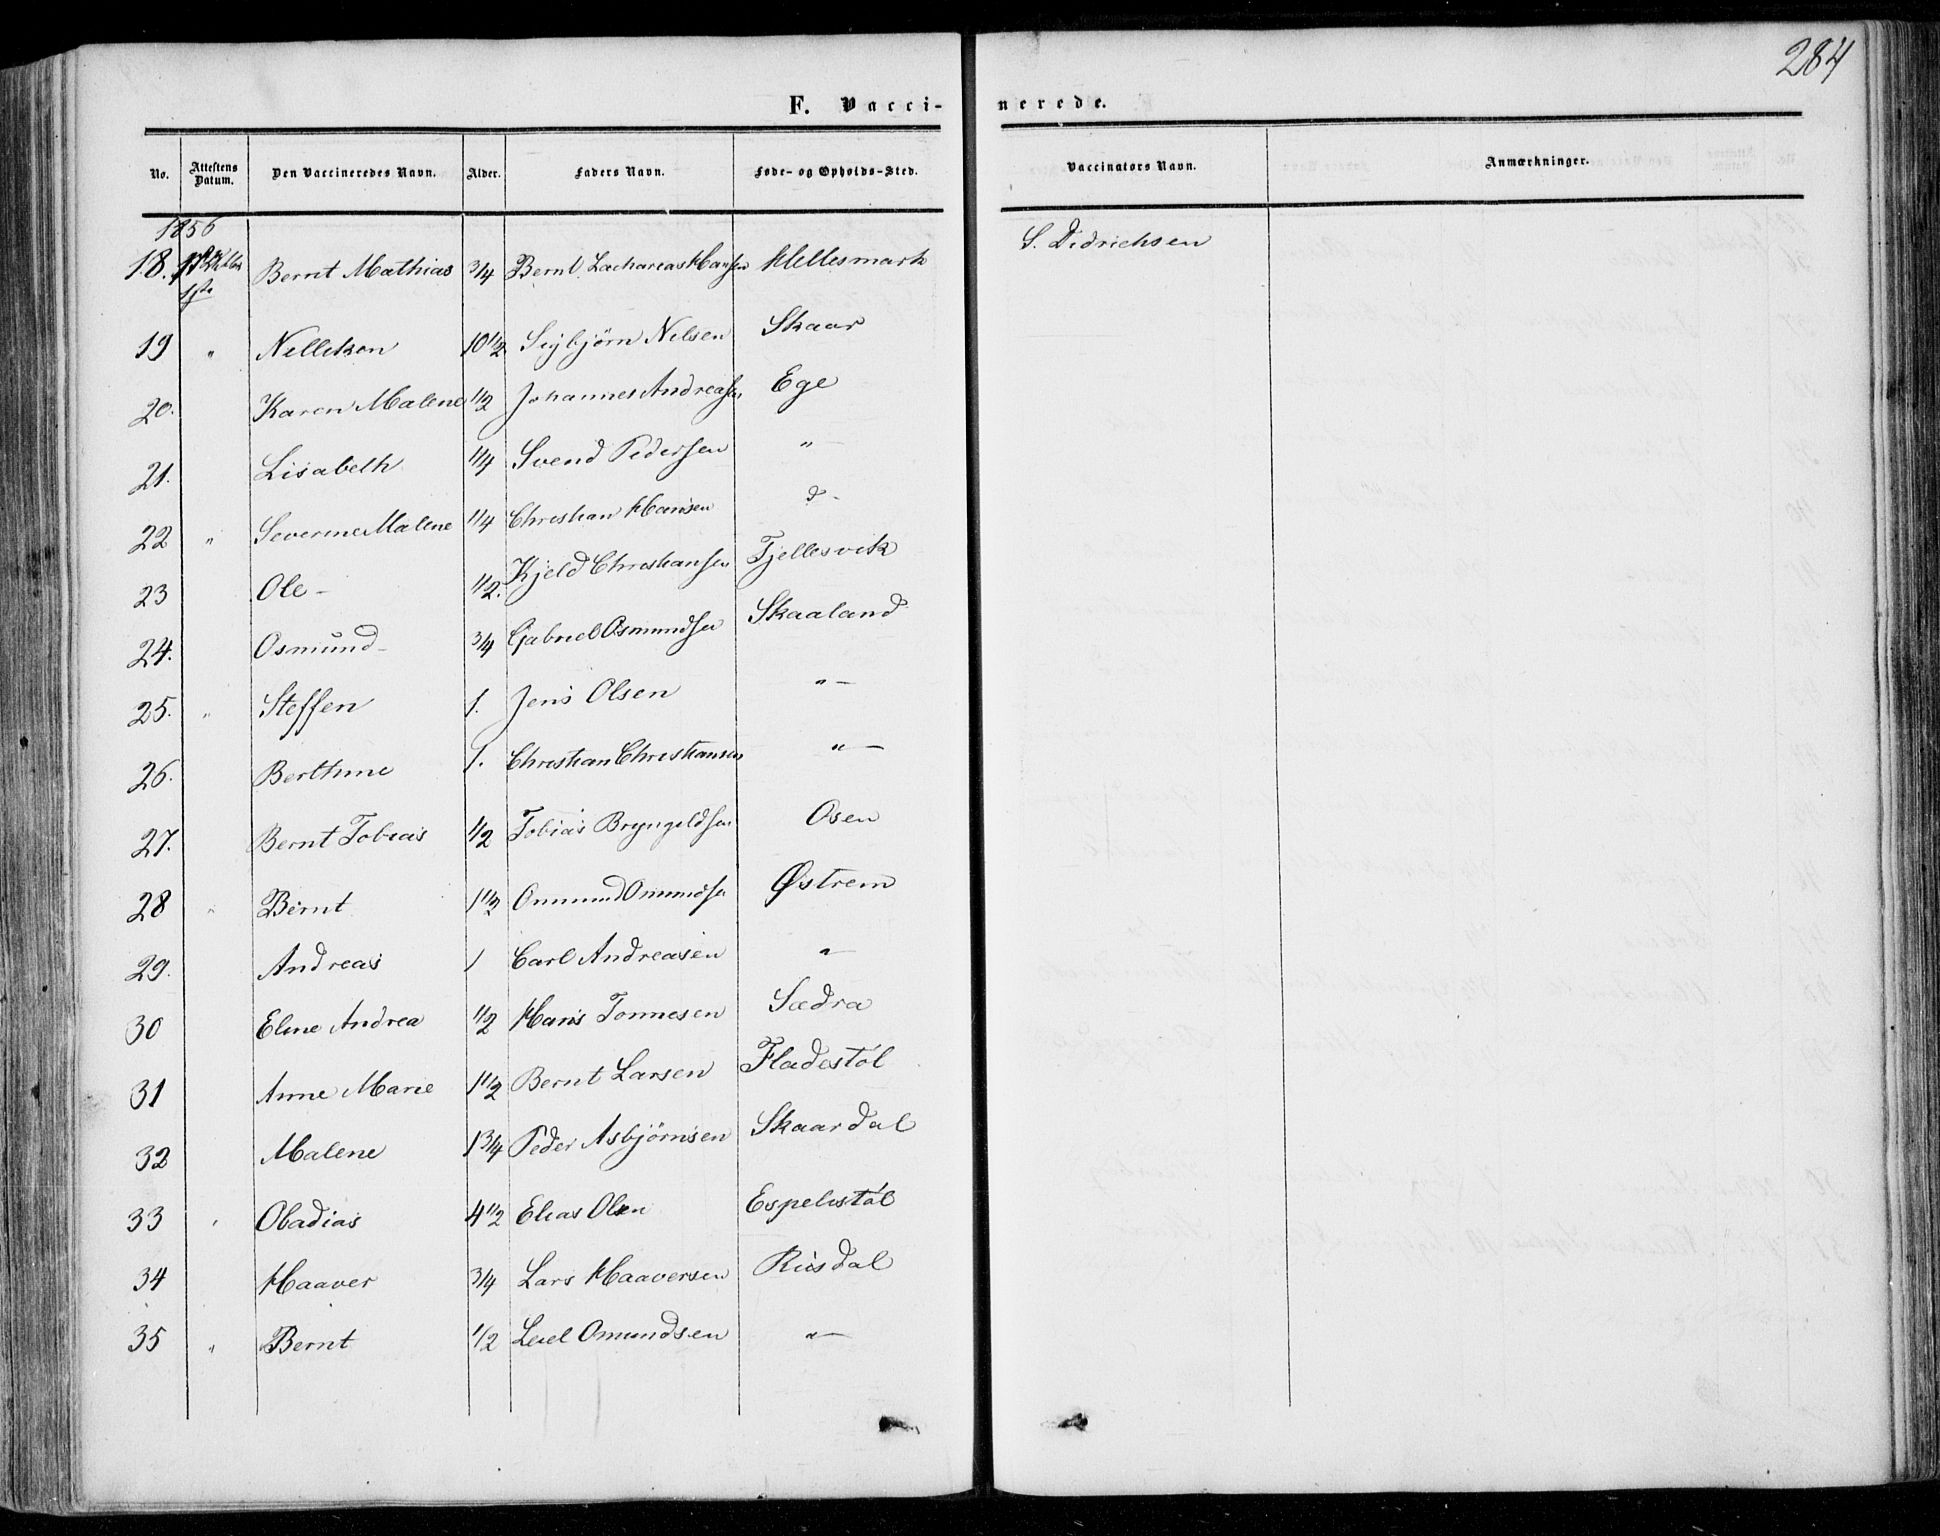 284
F. Vacci- nerede.
No. Attestens Datum. Den Vaccineredes Navn. Alder. Faders Navn. Føde- og Opholds-Sted. Vaccinators Navn. Anmærkninger.
1856
18. Bernt Mathias 3/4 Bernt Zachareas Hansen Hellesmark S. Didrichsen
19 " Nellikon 10 1/2 Sigbjørn Nelsen Skaar
20. Karen Malene 1/2 Johannes Andreassen Ege
21. Lisabeth 1/4 Svend Pedersen "
22 " Severine Malene 1/4 Christian Hansen d-
23 Ole - 1/2. Kjeld Christiansen Tjellesvik
24. Osmund - 3/4 Gabriel Osmundsen Skaaland
25. " Steffen 1. Jens Olsen "-
26. Berthine 1. Christian Christiansen "-
27. Bernt Tobias 1/2 Tobias Bryngeldsen Osen
28 " Bernt 1 1/2 Ommund Omundsen Østrem
29. Andreas 1 Carl Andreasen "
30 Eline Andrea 1/2 Hans Tonnesen Sædra
31 Anne Marie 1 1/2 Bernt Larsen Fladestøl
32 Malene 1 3/4 Peder Asbjørnsen Skaardal
33 " Obadias 4 1/2 Elias Olsen Espelistøl
34 Haaver 3/4 Lars Haaversen Rusdal
35 " Bernt 1/2 Leiel Omundsen "-